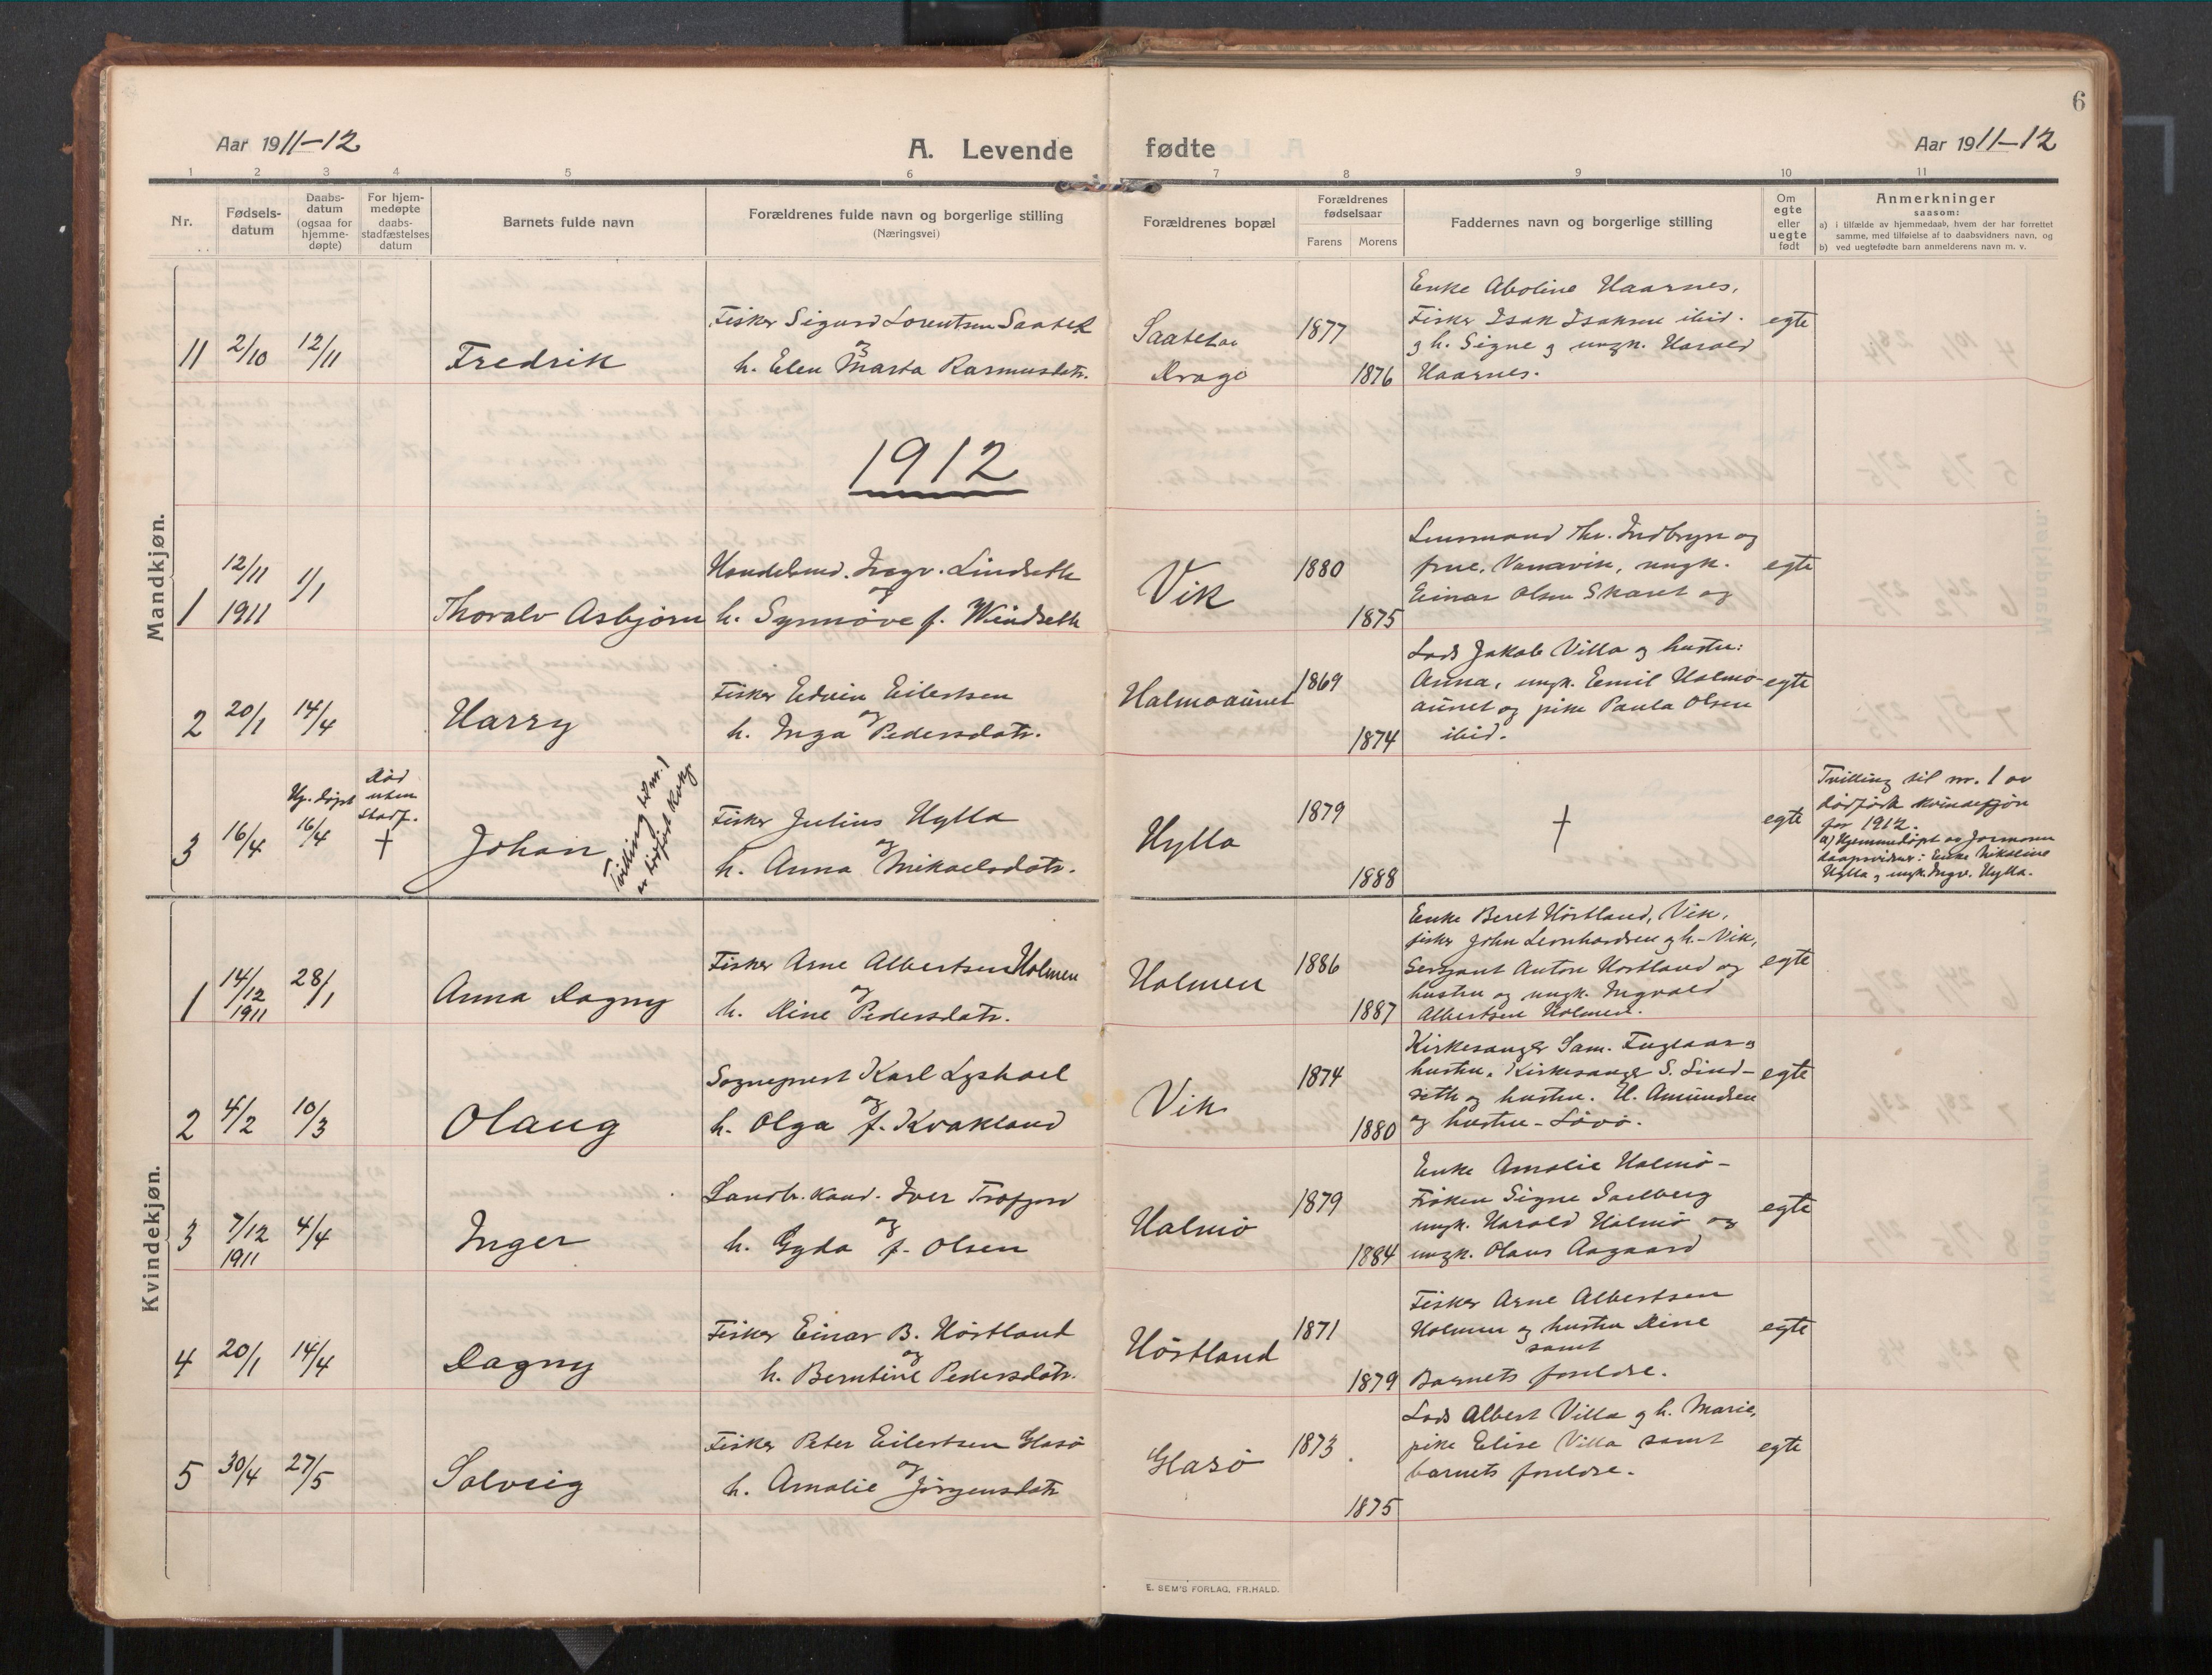 6
Aar 1911-12
A. Levende fødte
Aar 1911-12
1 2 3 4 5 6 7 8 9 10 11
Nr.
Fødsels-
datum
Daabs-
datum
(ogsaa for
hjemme-
døpte)
For hjem-
medøpte
daabs-
stadfæstelses
datum
Barnets fulde navn
Forældrenes fulde navn og borgerlige stilling
(Næringsvei)
Forældrenes bopæl
Forældrenes
fødselsaar
Farens Morens
Faddernes navn og borgerlige stilling
Om
egte
eller
uegte
født
Anmerkninger
saasom:
a) i tilfælde av hjemmedaab, hvem der har forrettet
samme, med tilføielse av to daabsvidners navn, og
b) ved uegtefødte barn anmelderens navn m. v.
Mandkjøn.
11 2/10 12/11
Fredrik
Fisker Sigurd Lorentsen
og
h. Elen Marta Rasmusdatr.
Dragø
1877
1876
Enke Haarnes,
Fisker Isak Isaksen ibid.
og h. Signe og ungk. Harald
Haarnes.
egte
1912
1 12/11 1911 1/1
Thoralv Asbjørn
Handelsmd. Ingv. Lindseth
og
h. Synnøve f. Windseth
Vik
1880
1875
Lensmand Thr. Indbryn og
frue, ungk.
Einar Olsen Skaret og
egte
2 20/1 14/4
Harry
Fisker Edvin Eilertsen
og
h. Inga Pedersdatr.
Halmoaunet
1869
1874
Lods Jakob Villa og hustru:
Anna, ungk. Emil Halmo-
aunet og pike Paula Olsen
ibid.
egte
3 16/4
Hj. døpt
16/4
Død
uten
Stadf.
†
Johan
Tvilling til nr. 1
av dødfødt kvkj.
Fisker Julius Hylla
og
h. Anna Mikaelsdatr.
Hylla
1879
1888
†
egte
Tvilling til nr. 1 av
dødfødte kvindekjøn
for 1912.
a) Hjemmedøpt av Jormoren
daapsvidner: Enke Nikoline
Hylla og ungk. Ingv. Hylla.
Kvindekjøn.
1 14/12 1911 28/1
Anna Dagny
Fisker Arne Albertsen Holmen
og
h. Dine Pedersdatr.
Holmen
1886
1887
Enke Beret Hörtland, Vik,
fisker John Leonhardsen og h. - Vik,
Sersjant Anton Hortland og
hustru og ungk. Ingvald
Albertsen Holmen.
egte
2 4/2 10/3
Olaug
Sogneprest Karl Lyshoel
og
h. Olga f. Kvakland
Vik
1874
1880
Kirkesanger Sam. Fuglaar og
hustru, Kirkesanger S. Lind-
seth og hustru. H. Amundsen
og hustru - Sövö.
egte
3 7/12 1911 4/4
Inger
Landbr. kand. Iver Trofjord
og
h. Gyda f. Olsen
Halmö
1879
1884
Enke Amalie Halmö -
Frøken Signe Saelberg
ungk. Harald Halmö og
ungk. Olaus Aagaard
egte
4 20/1 14/4
Dagny
Fisker Einar B. Hörtland
og
h. Berntine Pedersdatr.
Hörtland
1871
1879
Fisker Arne Albertsen
Holmen og hustru Dine
samt
Barnets foreldre.
egte
5 30/4 27/5
Solveig
Fisker Peter Eilertsen Glasö
og
h. Amalie Jörgensdatr
Glasö
1873
1875
Lods Albert Villa og h. Marie,
pike Elise Villa samt
barnets foreldre.
egte
E. SEM'S FORLAG, FR.HALD.